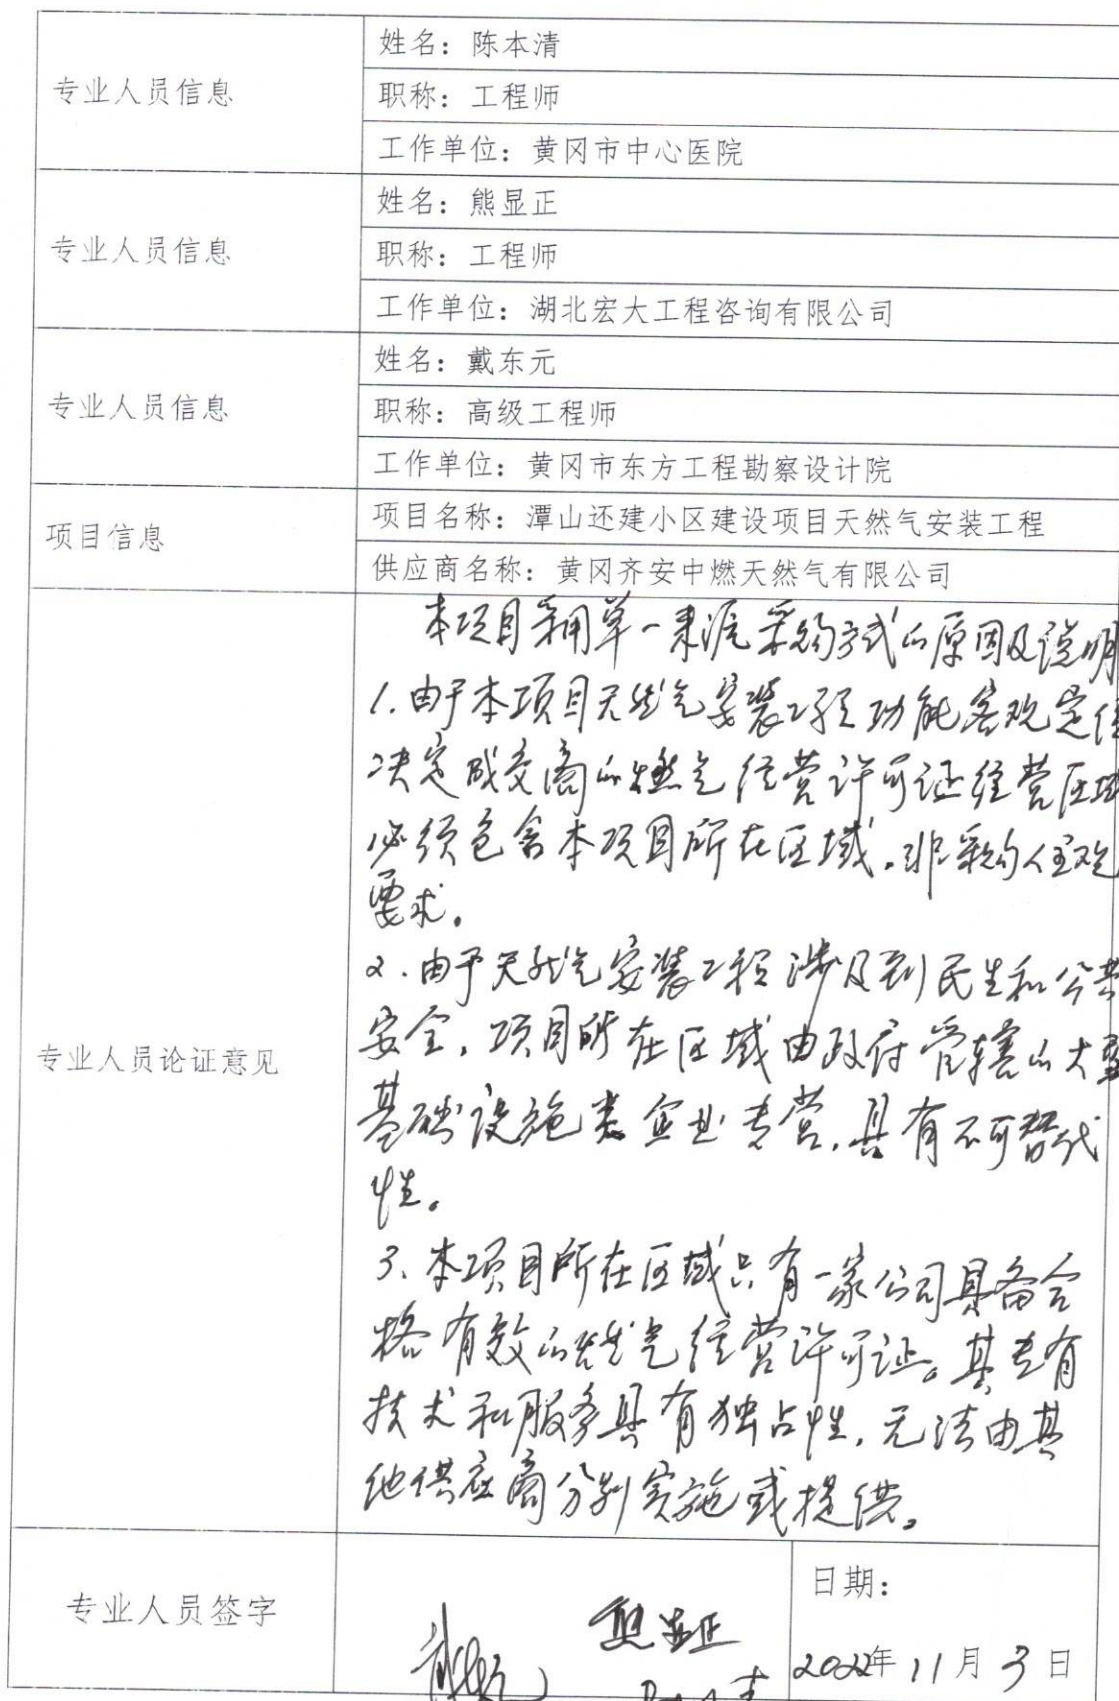 专业人员信息
姓名：陈本清
职称：工程师
工作单位：黄冈市中心医院
专业人员信息
姓名：熊显正
职称：工程师
工作单位：湖北宏大工程咨询有限公司
专业人员信息
姓名：戴东元
职称：高级工程师
工作单位：黄冈市东方工程勘察设计院
项目信息
项目名称：潭山还建小区建设项目天然气安装工程
供应商名称：黄冈齐安中燃天然气有限公司
专业人员论证意见
本项目采用单一来源采购方式的原因及说明
1.由于本项目天然气安装工程功能客观定位
决定成交商的燃气经营许可证经营区域
必须包含本项目所在区域。非采购人主观
要求。
2.由于天然气安装工程涉及到民生和公共
安全，项目所在区域由政府管辖的大型
基础设施类企业专营，具有不可替代
性。
3、本项目所在区域只有一家公司具备合
格有效的燃气经营许可证。其专有
技术和服务具有独占性，无法由其
他供应商分别实施或提供。
专业人员签字
熊显正
日期：
2022年11月3日